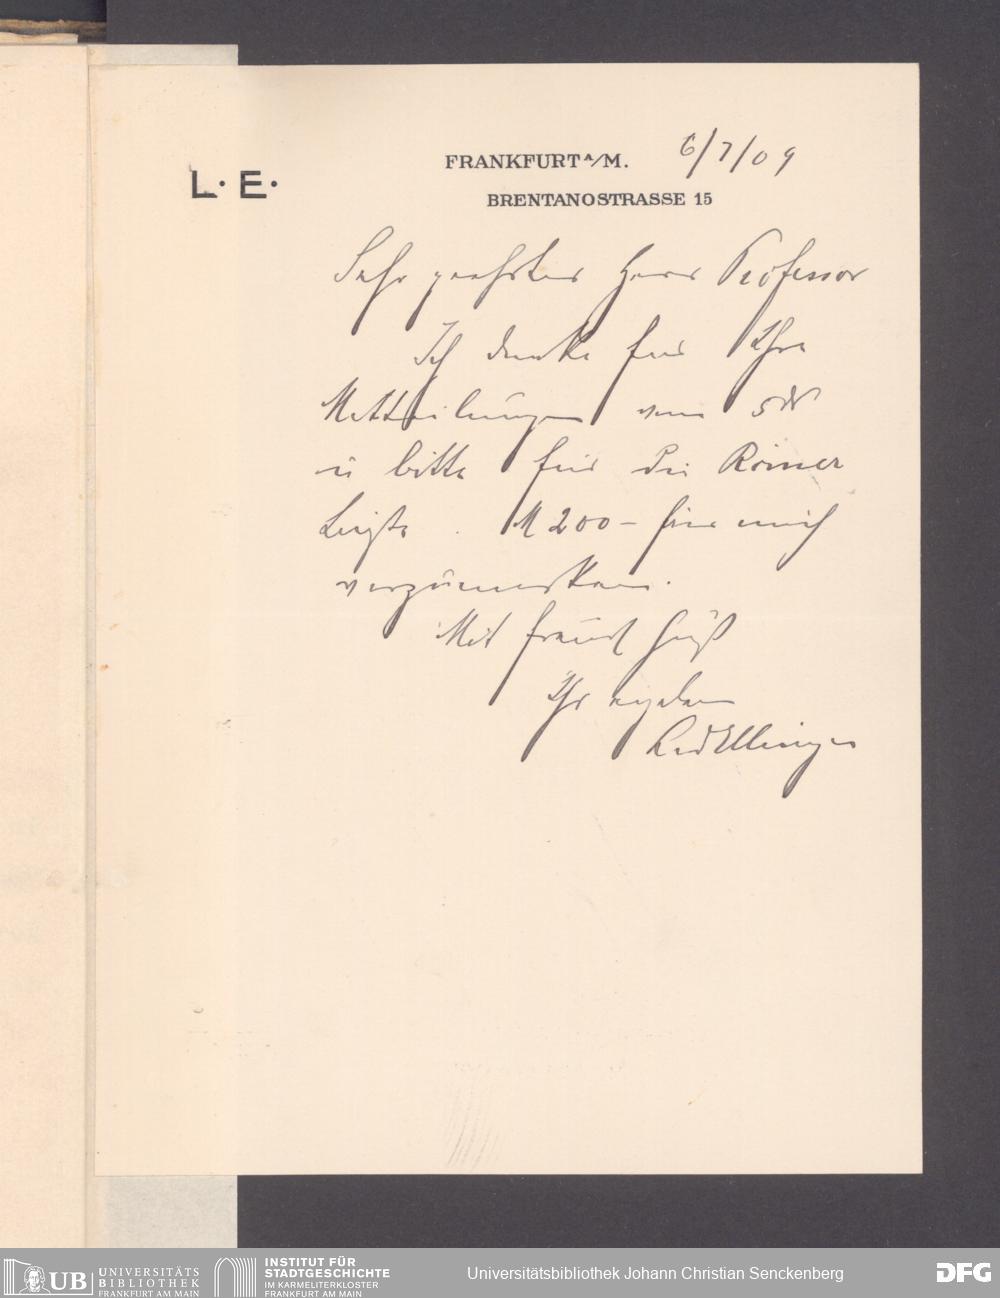 L. E.
FRANKFURT A/M.
6/7/09
BRENTANOSTRASSE 15
Sehr geehrter Herr Professor
Ich danke für Ihre
Mitteilungen vom 5ten
u bitte für die Römer
M 200 – für mich
vorzumerken.
Mit freundl Gruß
Ihr ergebener
Leo Ellinger
UB UNIVERSITÄTS
BIBLIOTHEK
FRANKFURT AM MAIN
INSTITUT FÜR
STADTGESCHICHTE
IM KARMELITERKLOSTER
FRANKFURT AM MAIN
Universitätsbibliothek Johann Christian Senckenberg
DFG